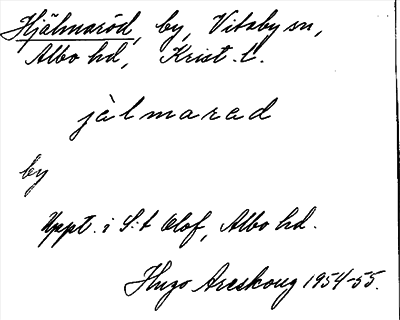 Hjälmaröd, by, Vitaby sn,
Albo hd, Krist. l.
jàlmarad
by
Uppt. i S:t Olof, Albo hd.
Hugo Areskoug 1954-55.